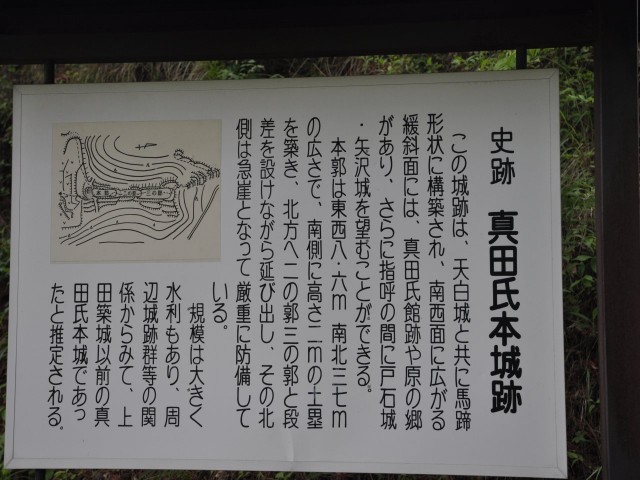 史跡 真田氏本城跡
この城跡は、天白城と共に馬蹄
形状に構築され、南西面に広がる
緩斜面には、真田氏館跡や原の郷
があり、さらに指呼の間に戸石城
・矢沢城を望むことができる。
本郭は東西八・六m 南北三七m
の広さで、南側に高さ二mの土塁
を築き、北方へ二の郭三の郭と段
差を設けながら延び出し、その北
側は急崖となって厳重に防備して
いる。
規模は大きく
水利もあり、周
辺城跡群等の関
係からみて、上
田築城以前の真
田氏本城であっ
たと推定される。
本郭 二の郭 三の郭